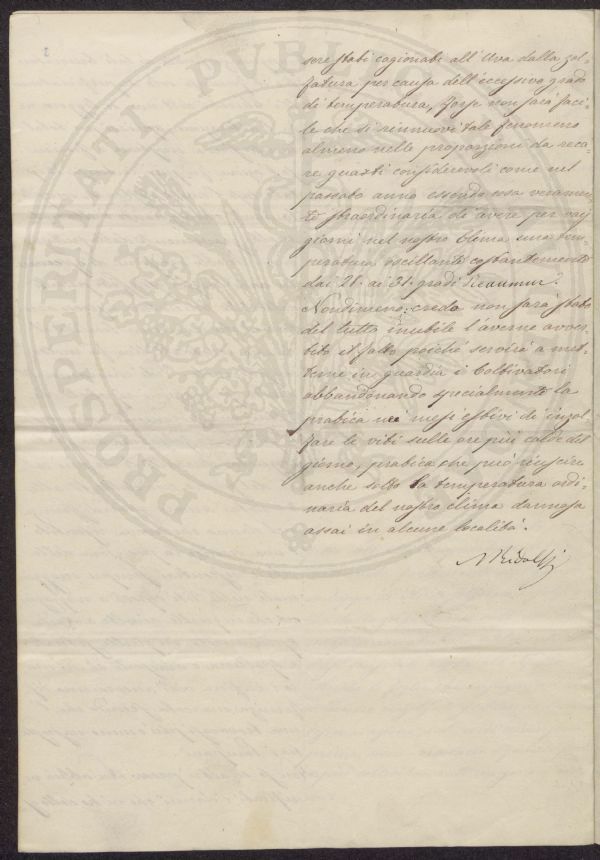 sere stati cagionati all'Uva dalla zol-
fatura per causa dell'eccessivo grado
di temperatura, forse non sarà faci-
le che si rinnuovi tale fenomeno
almeno nelle proporzioni da reca-
re guasti considerevoli come nel
passato anno essendo cosa veramen-
te straordinaria di avere per varj
giorni nel nostro Clima una tem-
peratura oscillante costantemente
dai 28. ai 31. gradi Reaumur.
Nondimeno credo non sarà stato
del tutto inutile l'averne avver-
tito il fatto poichè servirà a met-
terne in guardia i Coltivatori
abbandonando specialmente la
pratica nei mesi estivi di inzol-
fare le viti sulle ore più calde del
giorno, pratica che può riuscire
anche sotto la temperatura ordi-
naria del nostro clima dannosa
assai in alcune località.
Ridolfi
PROSPERITATI PVBLI